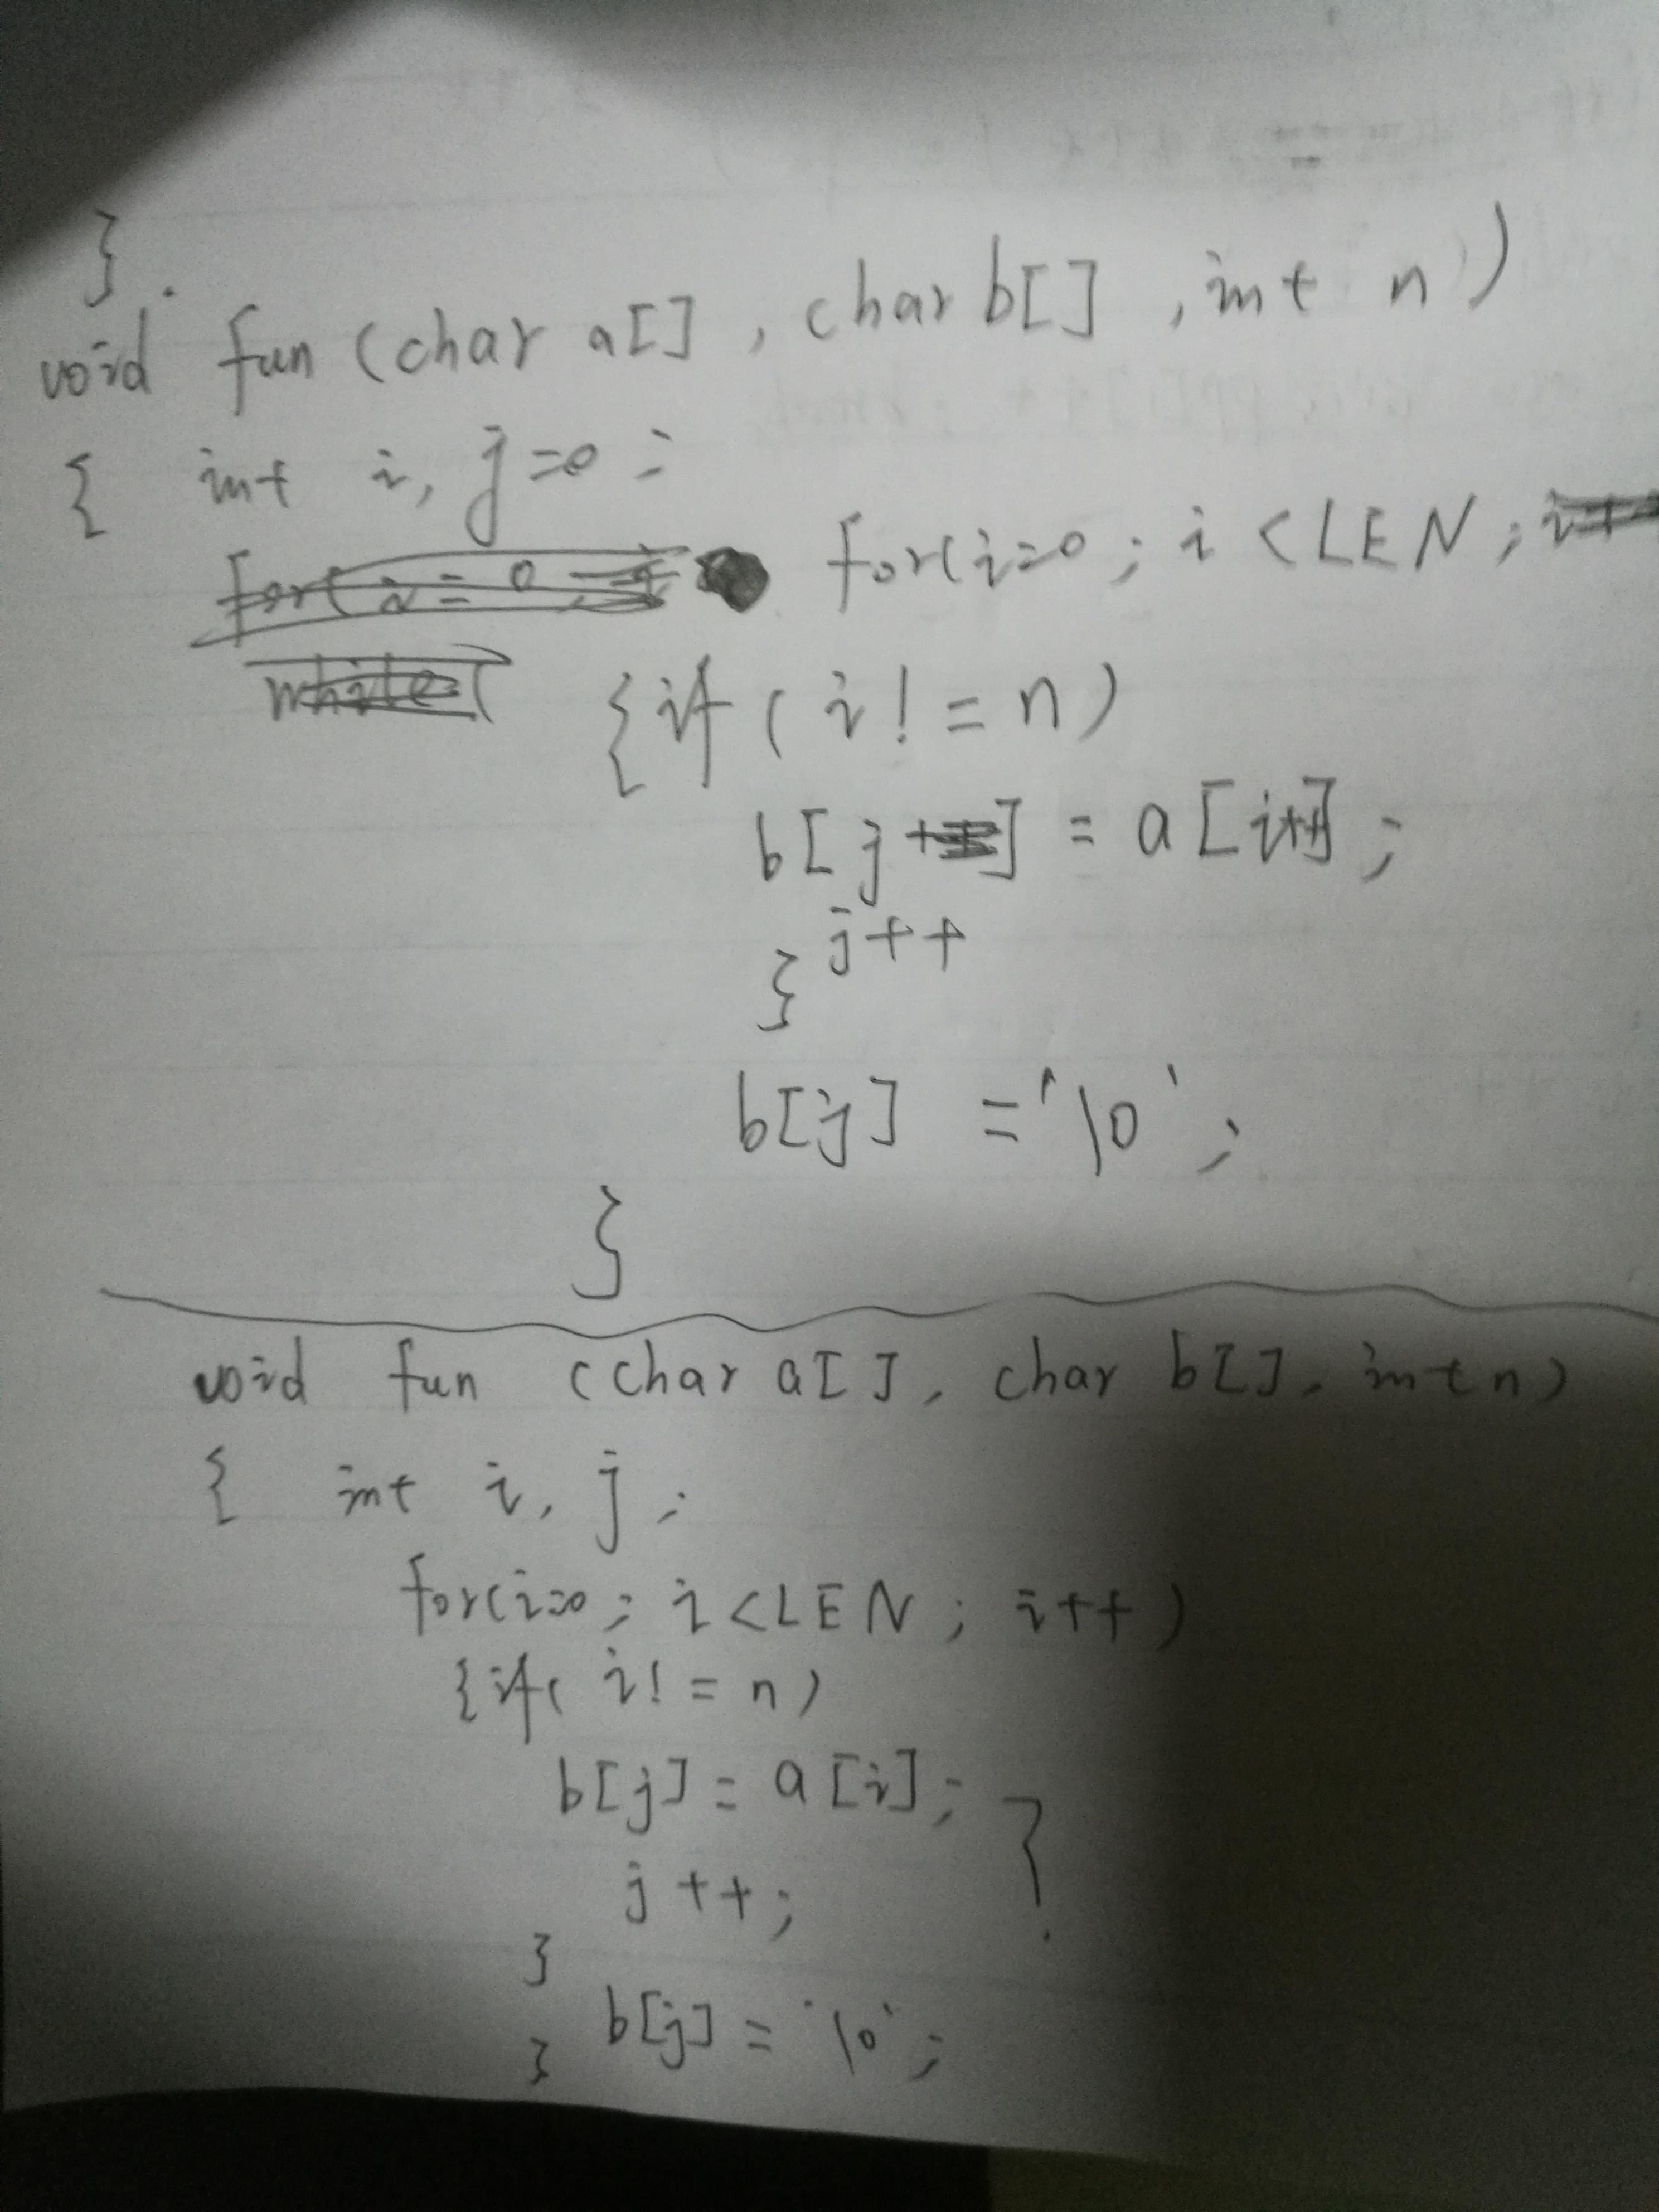 }.
void fun (char a[] , char b[] , int n)
{ int i, j=0 ;
for(i=0 ; i < LEN ; i++
while(
{if ( i != n)
b[j ] = a [i++] ;
j++
}
b[j] = '\0' ;
}
void fun (char a[], char b[], int n)
{ int i, j ;
for(i=0 ; i < LEN ; i++ )
{if( i! = n)
b[j] = a [i] ;
j ++ ;
}
}
b[j] = '\0' ;
}